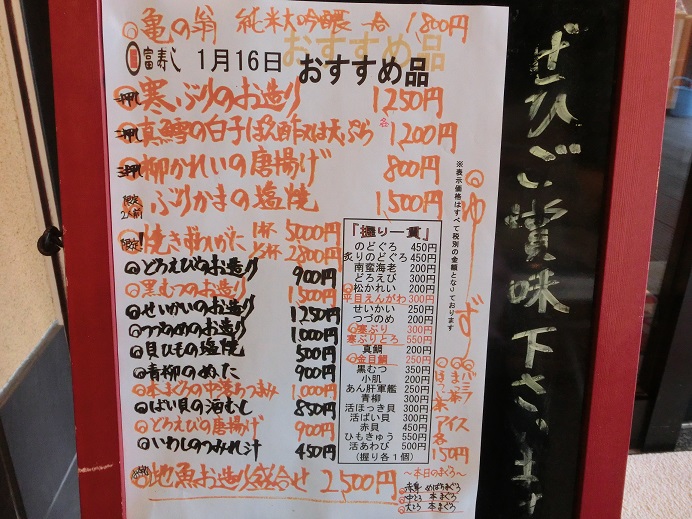 ◎亀の翁 純米大吟醸 一合 1800円
富寿し 1月16日 おすすめ品
おすすめ品
一押し 寒ぶりのお造り 1250円
二押し 真鱈の白子ぽん酢又は天ぷら 各 1200円
三押し 柳かれいの唐揚げ 800円
限定2人前 ぶりかまの塩焼 1,500円
限定! 焼きずわいがに 1杯 5000円
1/2杯 2800円
◎どろえびのお造り 900円
◎黒むつのお造り 1,500円
◎せいかいのお造り 1,250円
◎つづめのお造り 1,000円
◎貝ひもの塩焼 500円
◎青柳のぬた 900円
◎本まぐろの中落ちつまみ 1,000円
◎ばい貝の酒むし 850円
◎どろえびの唐揚げ 900円
◎いわしのつみれ汁 450円
地魚お造り盛合せ 2,500円
『握り一貫』
のどぐろ 450円
炙りのどぐろ 450円
南蛮海老 200円
どろえび 300円
◎松かれい 200円
平目えんがわ 300円
せいかい 250円
つづのめ 200円
◎寒ぶり 300円
寒ぶりとろ 550円
真鯛 200円
◎金目鯛 250円
黒むつ 350円
小肌 200円
あん肝軍艦 250円
青柳 300円
活ほっき貝 300円
活ばい貝 300円
赤貝 450円
ひもきゅう 550円
活あわび 500円
(握り各1個)
※表示価格はすべて税別の金額となっております
◎ゆず
◎バニラ
◎まっ茶
◎ほうじ茶
アイス
各
150円
〜本日のまぐろ〜
赤身 めばちまぐろ
中とろ 本まぐろ
大とろ 本まぐろ
ぜひご賞味下さいませ